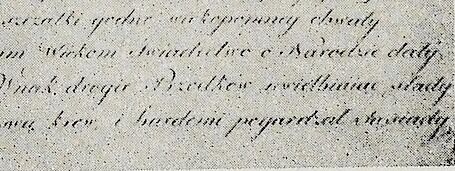 szczątki godne wiekopomney chwały
um Wiekom Świadectwo o Narodzie dały
Wnuk drogie Przodków uwielbiaiąc slady
wa krew i hardemi pogardzał Sąsiady